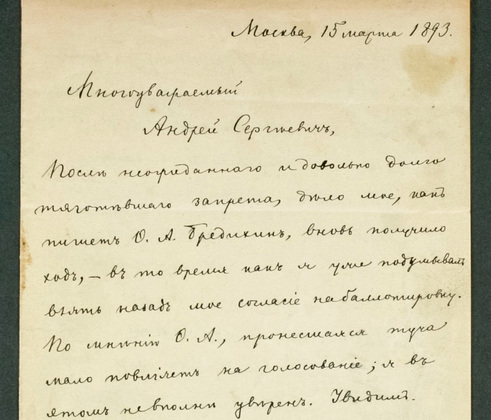 Москва, 15 марта 1893.
Многоуважаемый
Андрей Сергѣевичъ,
Послѣ неожиданнаго и довольно долго
тяготѣвшаго запрета, дѣло мое, какъ
пишетъ О. А. Бредихинъ, вновь получило
ходъ, – въ то время какъ я уже подумывалъ
взять назадъ мое согласіе на баллотировку.
По мнѣнію О. А., пронесшаяся туча
мало повліяетъ на голосованіе; я въ
этомъ не вполнѣ увѣренъ. Увидимъ.